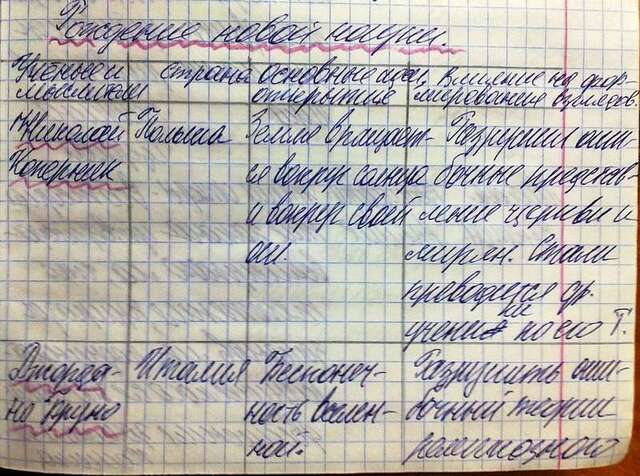 Рождение новой науки.
Учёные и мыслители
страна
основные идеи, открытие
Влияние на формирования взглядов.
1) Николай
Коперник
Польша
Земля вращает-
ся вокруг солнца
и вокруг своей
оси.
Разрушил оши-
бочные представ-
ление церкви и
мирян. Стали
преводится др.
учени по его Т.
Джорда-
но Бруно
Италия
Бесконеч-
ность вселен-
ной.
Разрушить оши-
бочный теории
религиозного